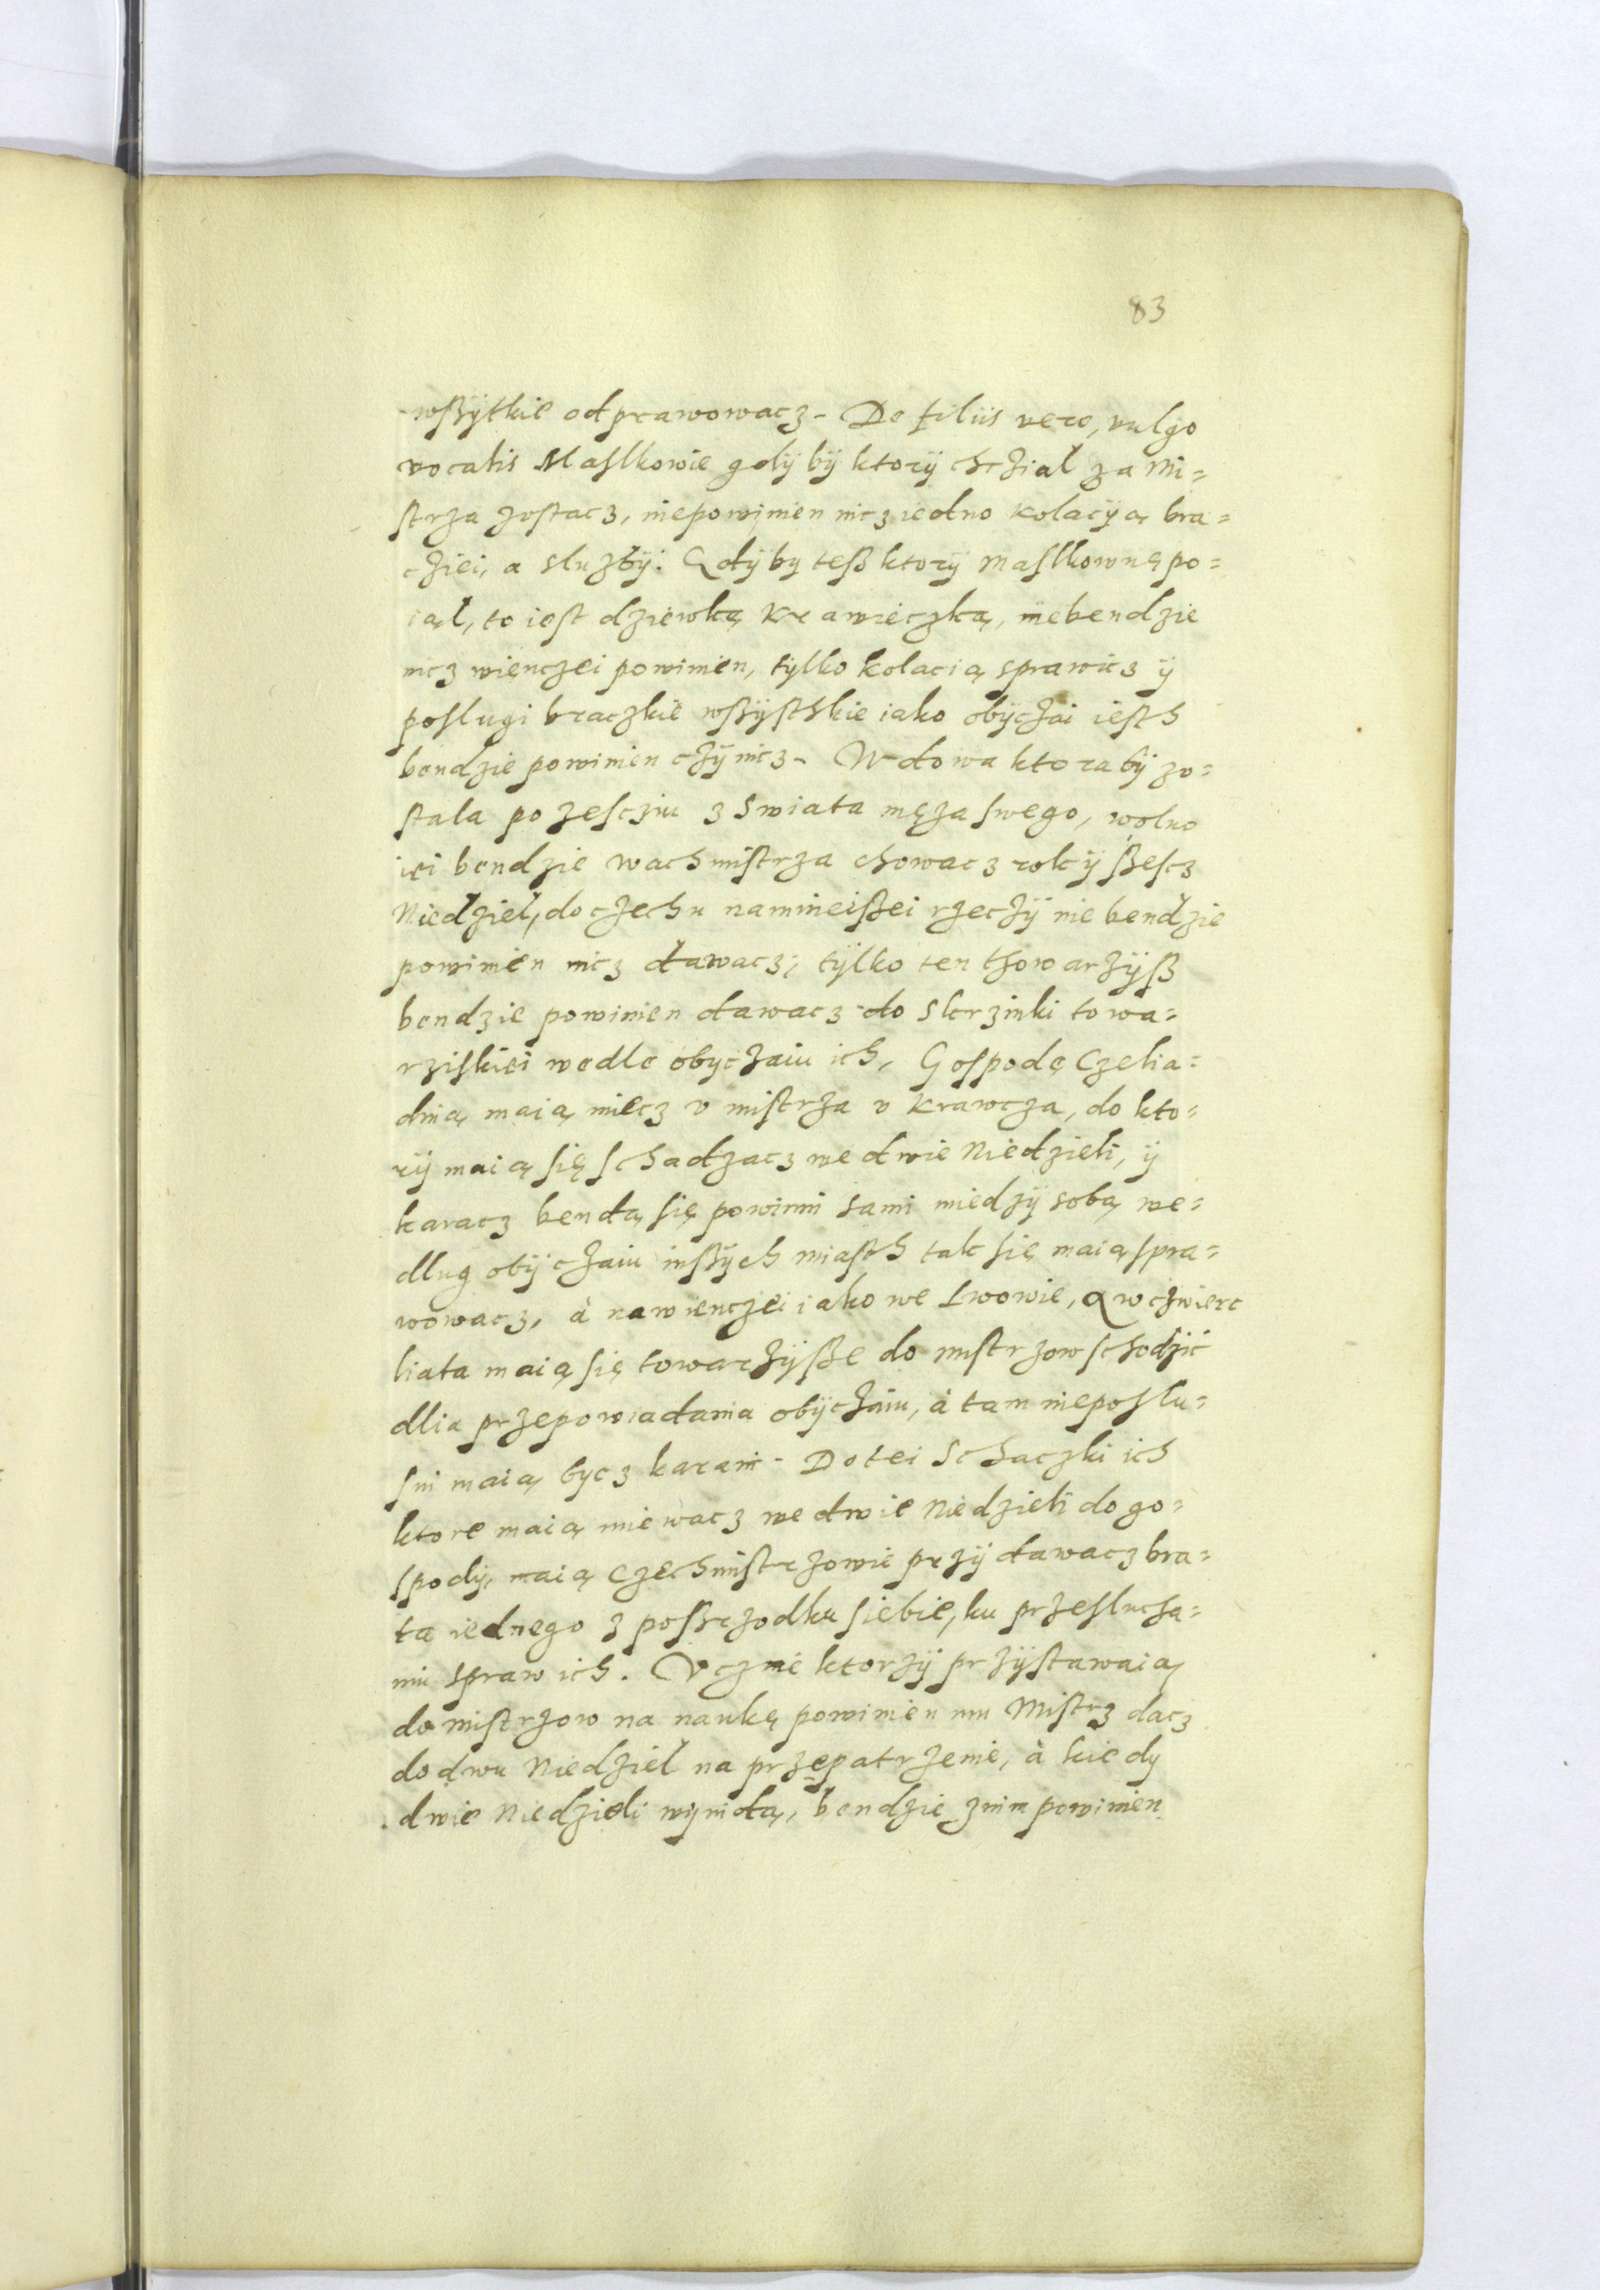 83
wßÿtkie odprawowacz - De filiis vero, vulgo
vocatis Maslkowie gdÿ bÿ ktorÿ chcział za Mi=
strza zostacz, niepowinien nicz iedno kolacÿą bra=
cziei, a służbÿ. Gdÿ by teß ktorÿ Maslkownę po=
iął, to iest dziewkę Krawieczką, niebendzie
nicz wienczei powinien, tÿlko kolacią sprawicz ÿ
poslugi braczkie wßÿsthkie iako obÿczai iesth
bendzie powinien czÿnicz - Wdowa ktorabÿ zo=
stala po zesciu z swiata męża swego, wolno
iei bendzie wachmistrza chowacz rok ÿ ßescz
Niedziel, do czechu namnieißei rzeczÿ nie bendzie
powinien nicz dawacz, tÿlko ten thowarzÿß
bendzie powinien dawacz do skrzinki towa=
rziskiei wedle obyczaiu ich, Gospodę Czelia=
dnią maią miecz v mistrza v Krawcza, do kto=
rÿ maią się schadzacz we dwie Niedzieli, ÿ
karacz bendą się powinni sami miedzÿ sobą we=
dlug obÿczaiu inßÿch miasth tak się maią spra=
wowacz, à nawienczei iako we Lwowie, a w czwierc
liata maią się towarzÿße do mistrzow schodzić
dlia przepowiadania obÿczaiu, à tam nieposlu=
sni maią bycz karani - Do tei Schaczki ich
ktore maią miewacz we dwie Niedzieli do go=
spodÿ, maią Czechmistrzowie przÿdawacz bra=
ta iednego z poßrzodku siebie, ku przesłucha=
niu spraw ich. Vcznie ktorzÿ przÿstawaią
do mistrzow na naukę powinien mu Mistrz dacz
do dwu Niedziel na przepatrzenie, à kiedy
dwie Niedzieli wÿnidą, bendzie znim powinien